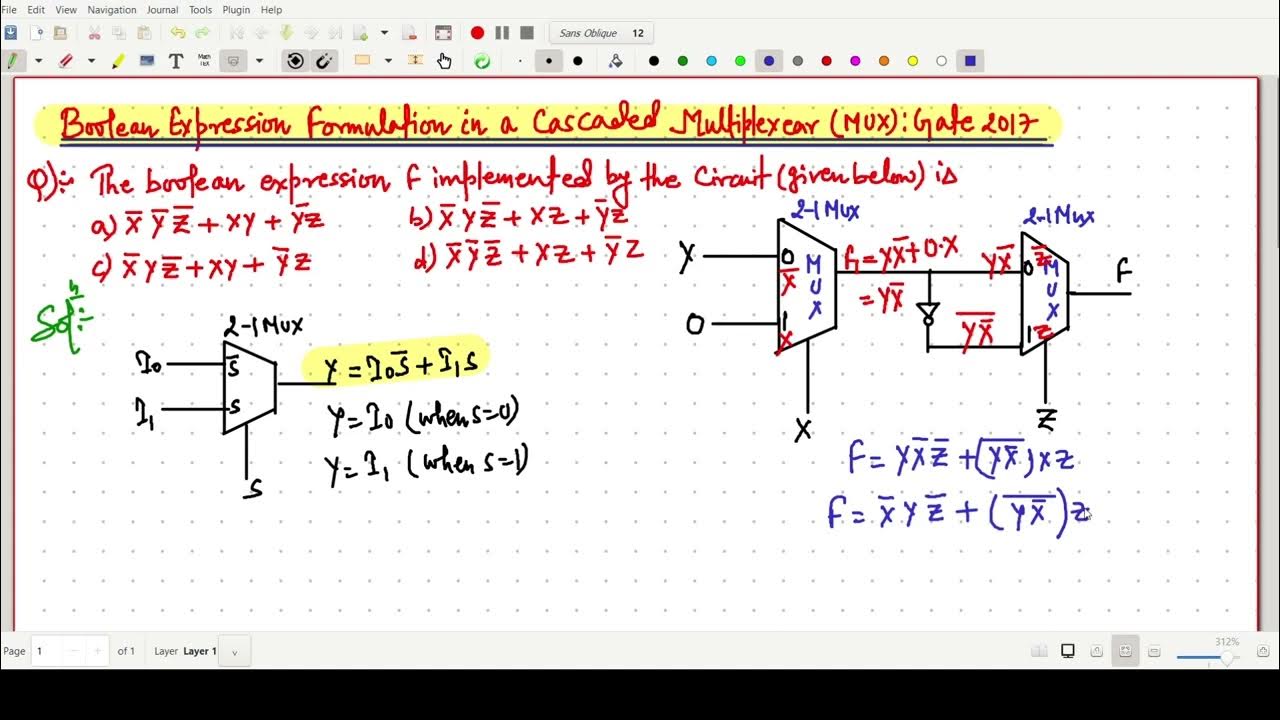 File Edit View Navigation Journal Tools Plugin Help
Sans Oblique 12
Boolean Expression Formulation in a Cascaded Multiplexear (MUX): Gate 2017
Q):- The boolean expression f implemented by the Circuit (given below) is
a) X̅ Y̅ Z̅ + XY + Y̅Z
b) X̅ Y Z̅ + XZ + Y̅Z
c) X̅ Y Z̅ + XY + Y̅Z
d) X̅ Y̅ Z̅ + XZ + Y̅ Z
Solⁿ:-
2-1 MUX
I₀
S̅
I₁
S
S
Y = I₀S̅ + I₁S
Y = I₀ (when S=0)
Y = I₁ (when S=1)
2-1 MUX
Y
0
X̅
0
1
X
MUX
X
f₁ = YX̅ + 0·X
= YX̅
2-1 MUX
YX̅
0 Z̅
\overline{YX̅}
1 Z
MUX
F
Z
F = YX̅Z̅ + (\overline{YX̅}) x Z
F = X̅ Y Z̅ + (\overline{YX̅}) Z
Page 1 of 1 Layer Layer 1
312%